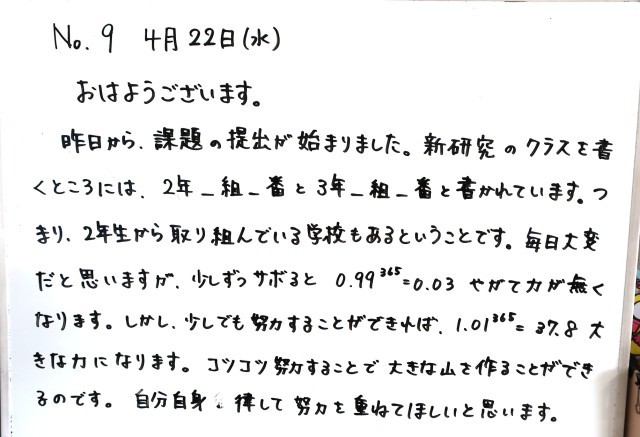 No. 9 4月22日(水)
おはようございます。
昨日から、課題の提出が始まりました。新研究のクラスを書
くところには、2年_組_番と3年_組_番と書かれています。つ
まり、2年生から取り組んでいる学校もあるということです。毎日大変
だと思いますが、少しずつサボると 0.99³⁶⁵=0.03 やがて力が無く
なります。しかし、少しでも努力することができれば、1.01³⁶⁵=37.8 大
きな力になります。コツコツ努力することで大きな山を作ることができ
るのです。自分自身 律して努力を重ねてほしいと思います。